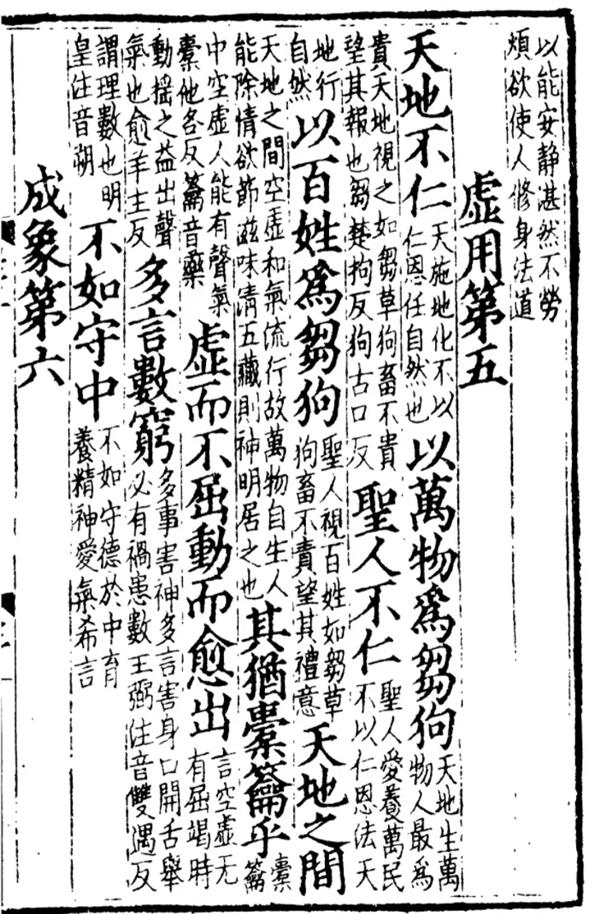 以能安静湛然不勞
煩欲使人修身法道
虛用第五
天地不仁 天施地化不以仁恩任自然也 以萬物爲芻狗 天地生萬物人最爲
貴天地視之如芻草狗畜不貴望其報也芻楚拘反狗古口反 聖人不仁 聖人愛養萬民不以仁恩法天
地行自然 以百姓爲芻狗 聖人視百姓如芻草狗畜不責望其禮意 天地之間
天地之間空虛和氣流行故萬物自生人能除情欲節滋味清五藏則神明居之也 其猶橐籥乎 橐籥
中空虛人能有聲氣橐他各反籥音藥 虛而不屈動而愈出 言空虛无有屈竭時
動揺之益出聲氣也愈羊主反 多言數窮 多事害神多言害身口開舌舉必有禍患數王弼注音雙遇反
謂理數也明皇注音朔 不如守中 不如守德於中育養精神愛氣希言
成象第六